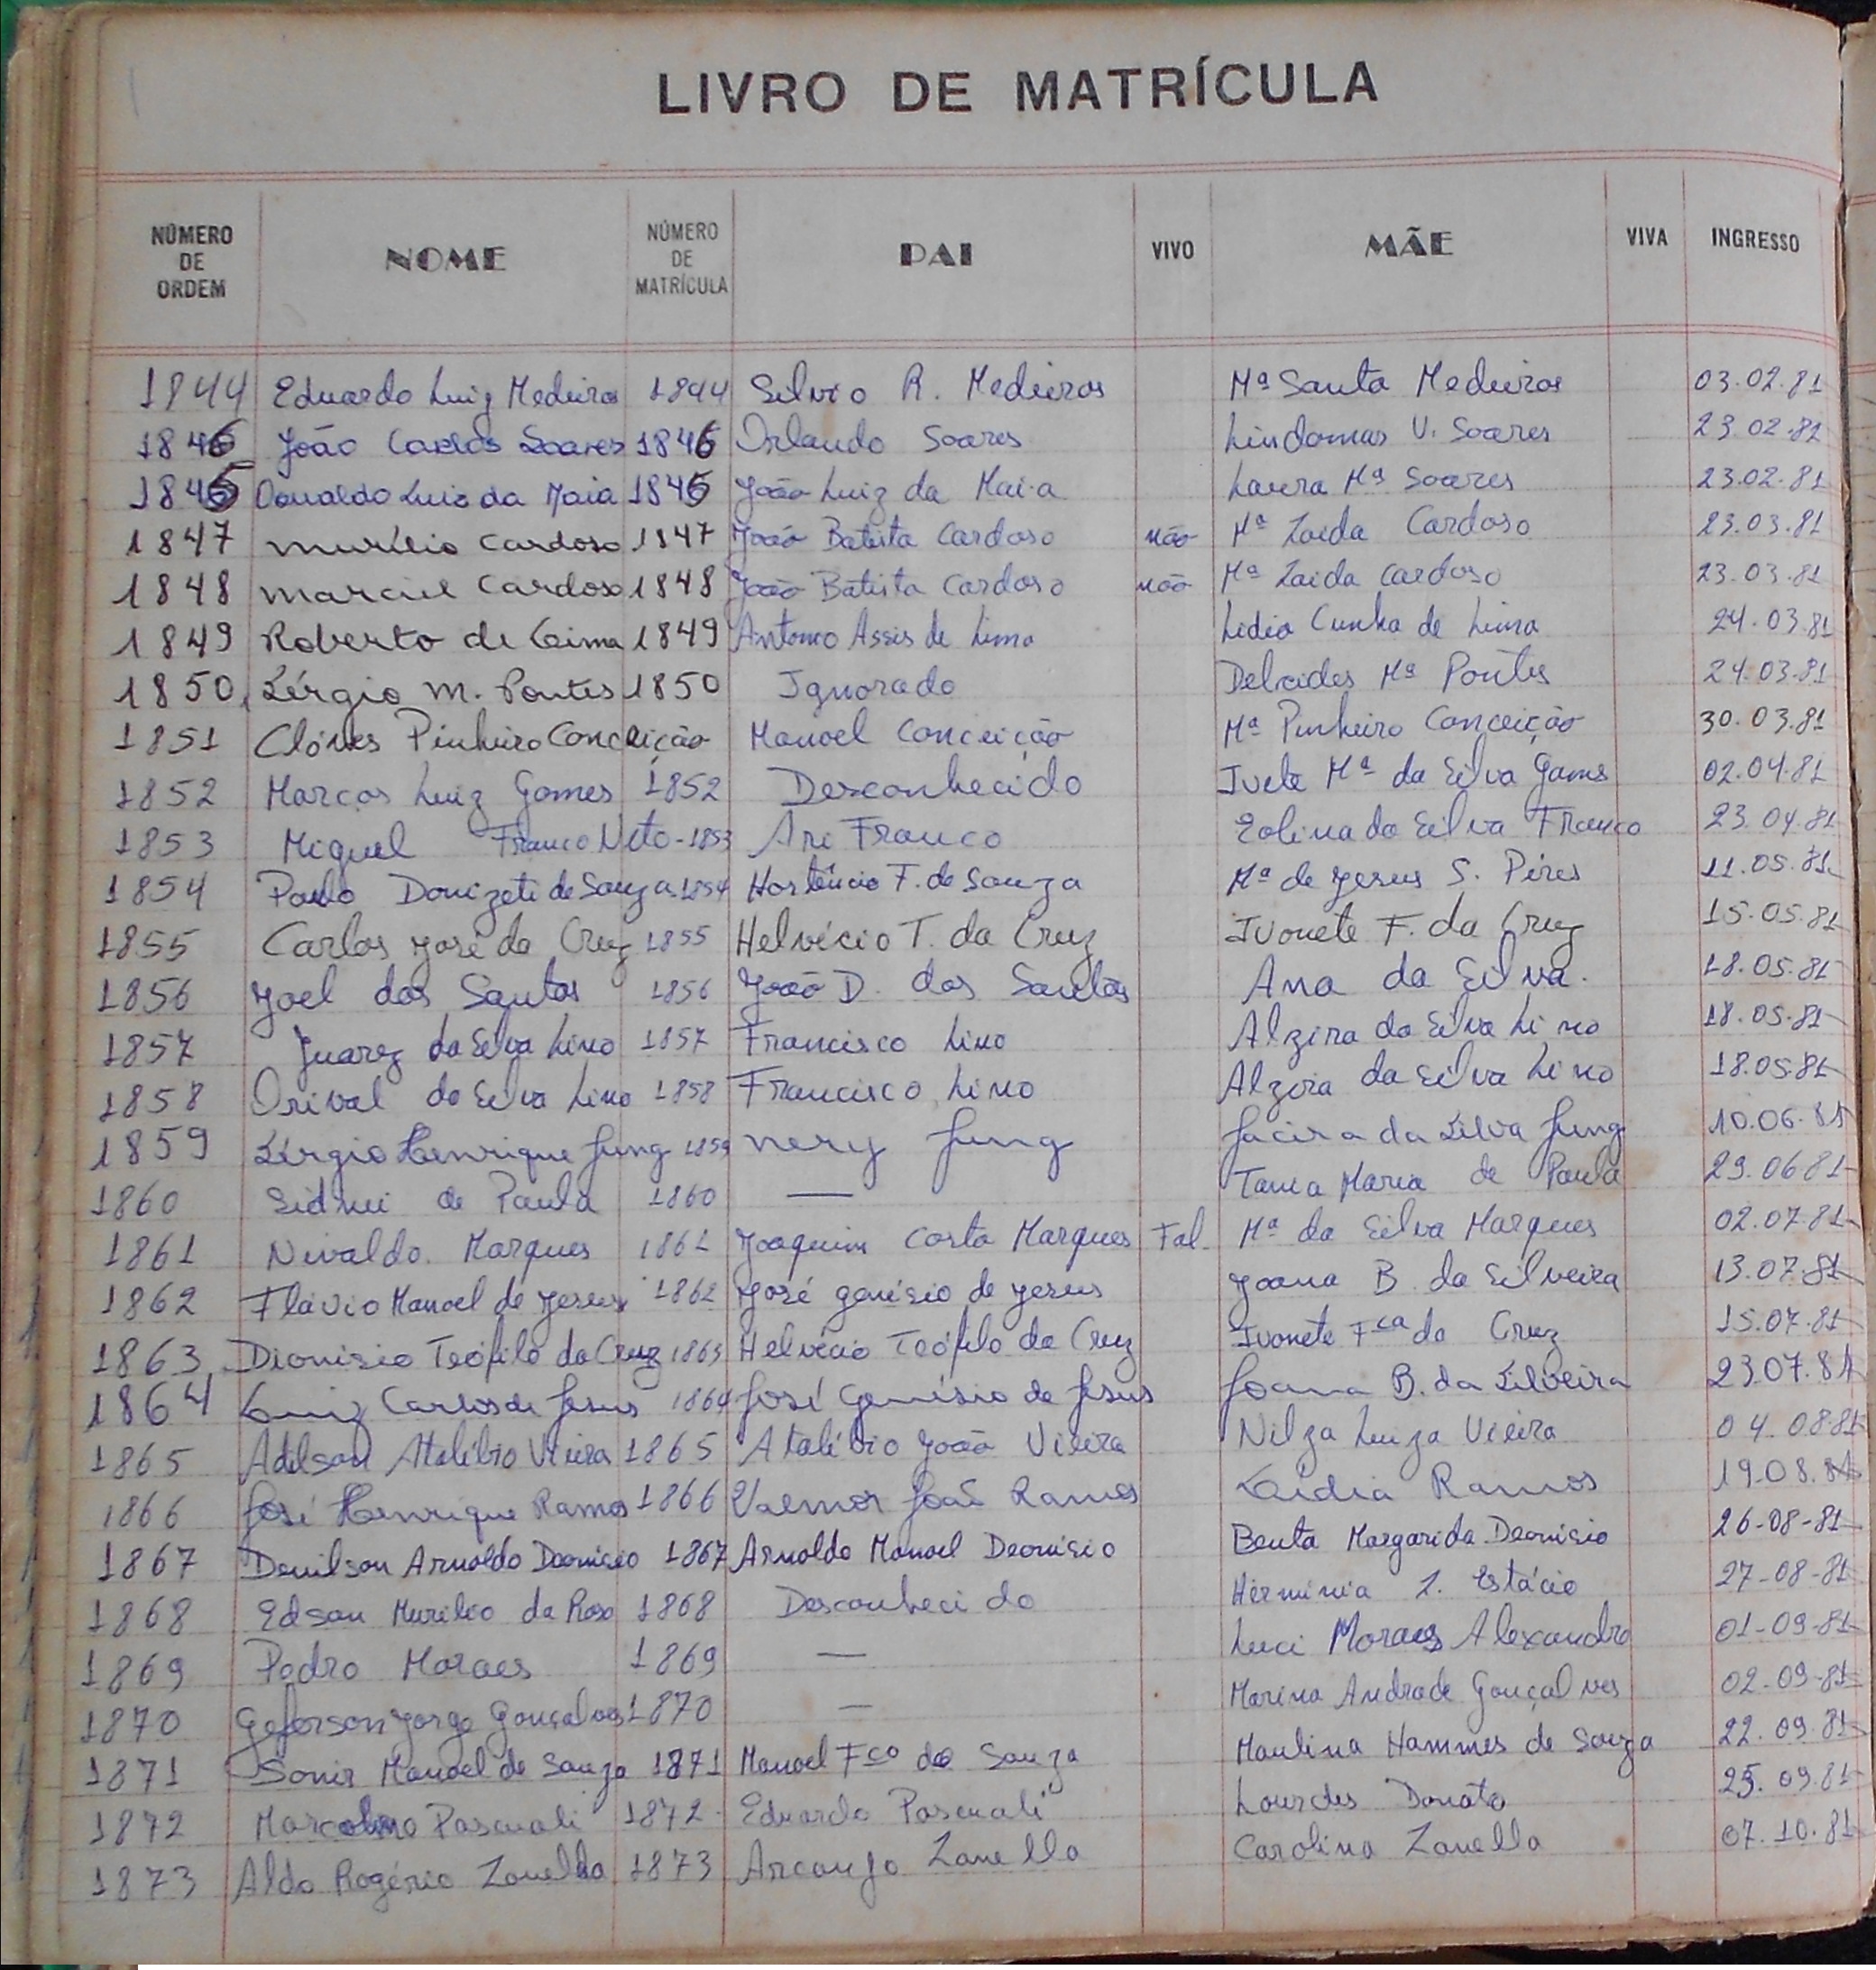 LIVRO DE MATRÍCULA
NÚMERO DE ORDEM NOME NÚMERO DE MATRÍCULA PAI VIVO MÃE VIVA INGRESSO
1844 Eduardo Luiz Medeiros 1844 Silvio R. Medeiros Mª Santa Medeiros 03.02.81
1846 João Carlos Soares 1846 Orlando Soares Lindomar V. Soares 23.02.81
1845 Osvaldo Luiz da Maia 1845 João Luiz da Maia Laura Mª Soares 23.02.81
1847 Murílio Cardoso 1847 João Batista Cardoso não Mª Zaida Cardoso 23.03.81
1848 Marciel Cardoso 1848 João Batista Cardoso não Mª Zaida Cardoso 23.03.81
1849 Roberto de Lima 1849 Antonio Assis de Lima Lidia Cunha de Lima 24.03.81
1850 Sérgio M. Pontes 1850 Ignorado Delcides Mª Pontes 24.03.81
1851 Clóves Pinheiro Conceição Manoel Conceição Mª Pinheiro Conceição 30.03.81
1852 Marcos Luiz Gomes 1852 Desconhecido Ivete Mª da Silva Gomes 02.04.81
1853 Miguel Franco Neto - 1853 Ari Franco Zolina da Silva Franco 23.04.81
1854 Paulo Donizeti de Souza 1854 Hortêncio F. de Souza Mª de Jesus S. Pires 11.05.81
1855 Carlos José da Cruz 1855 Helvécio T. da Cruz Ivonete F. da Cruz 15.05.81
1856 Joel dos Santos 1856 João D. dos Santos Ana da Silva. 18.05.81
1857 Juarez da Silva Lino 1857 Francisco Lino Alzira da Silva Lino 18.05.81
1858 Orival da Silva Lino 1858 Francisco Lino Alzira da Silva Lino 18.05.81
1859 Sérgio Henrique Jung 1859 Nery Jung Jacira da Silva Jung 10.06.81
1860 Sidnei de Paula 1860 — Tania Maria de Paula 29.06.81
1861 Nivaldo Marques 1861 Joaquim Costa Marques Fal. Mª da Silva Marques 02.07.81
1862 Flávio Manoel de Jesus 1862 José Genésio de Jesus Joana B. da Silveira 13.07.81
1863 Dionisio Teófilo da Cruz 1863 Helvécio Teófilo da Cruz Ivonete Fca da Cruz 15.07.81
1864 Luiz Carlos de Jesus 1864 José Genésio de Jesus Joana B. da Silveira 23.07.81
1865 Adilson Atalíbio Vieira 1865 Atalíbio João Vieira Nilza Luiza Vieira 04.08.81
1866 José Henrique Ramos 1866 Valmor José Ramos Laidia Ramos 19.08.81
1867 Denilson Arnoldo Deonisio 1867 Arnoldo Manoel Deonisio Benta Margarida Deonisio 26-08-81
1868 Edson Murilio da Rosa 1868 Desconhecido Herminia Z. Estácio 27-08-81
1869 Pedro Moraes 1869 — Luci Moraes Alexandre 01-09-81
1870 Geferson Jorge Gonçalves 1870 — Marina Andrade Gonçalves 02-09-81
1871 Sonir Manoel de Souza 1871 Manoel Fco de Souza Maulina Hammes de Souza 22.09.81
1872 Marcolino Pascuali 1872 Eduardo Pascuali Lourdes Donato 25.09.81
1873 Aldo Rogério Zanella 1873 Arcanjo Zanella Carolina Zanella 07.10.81